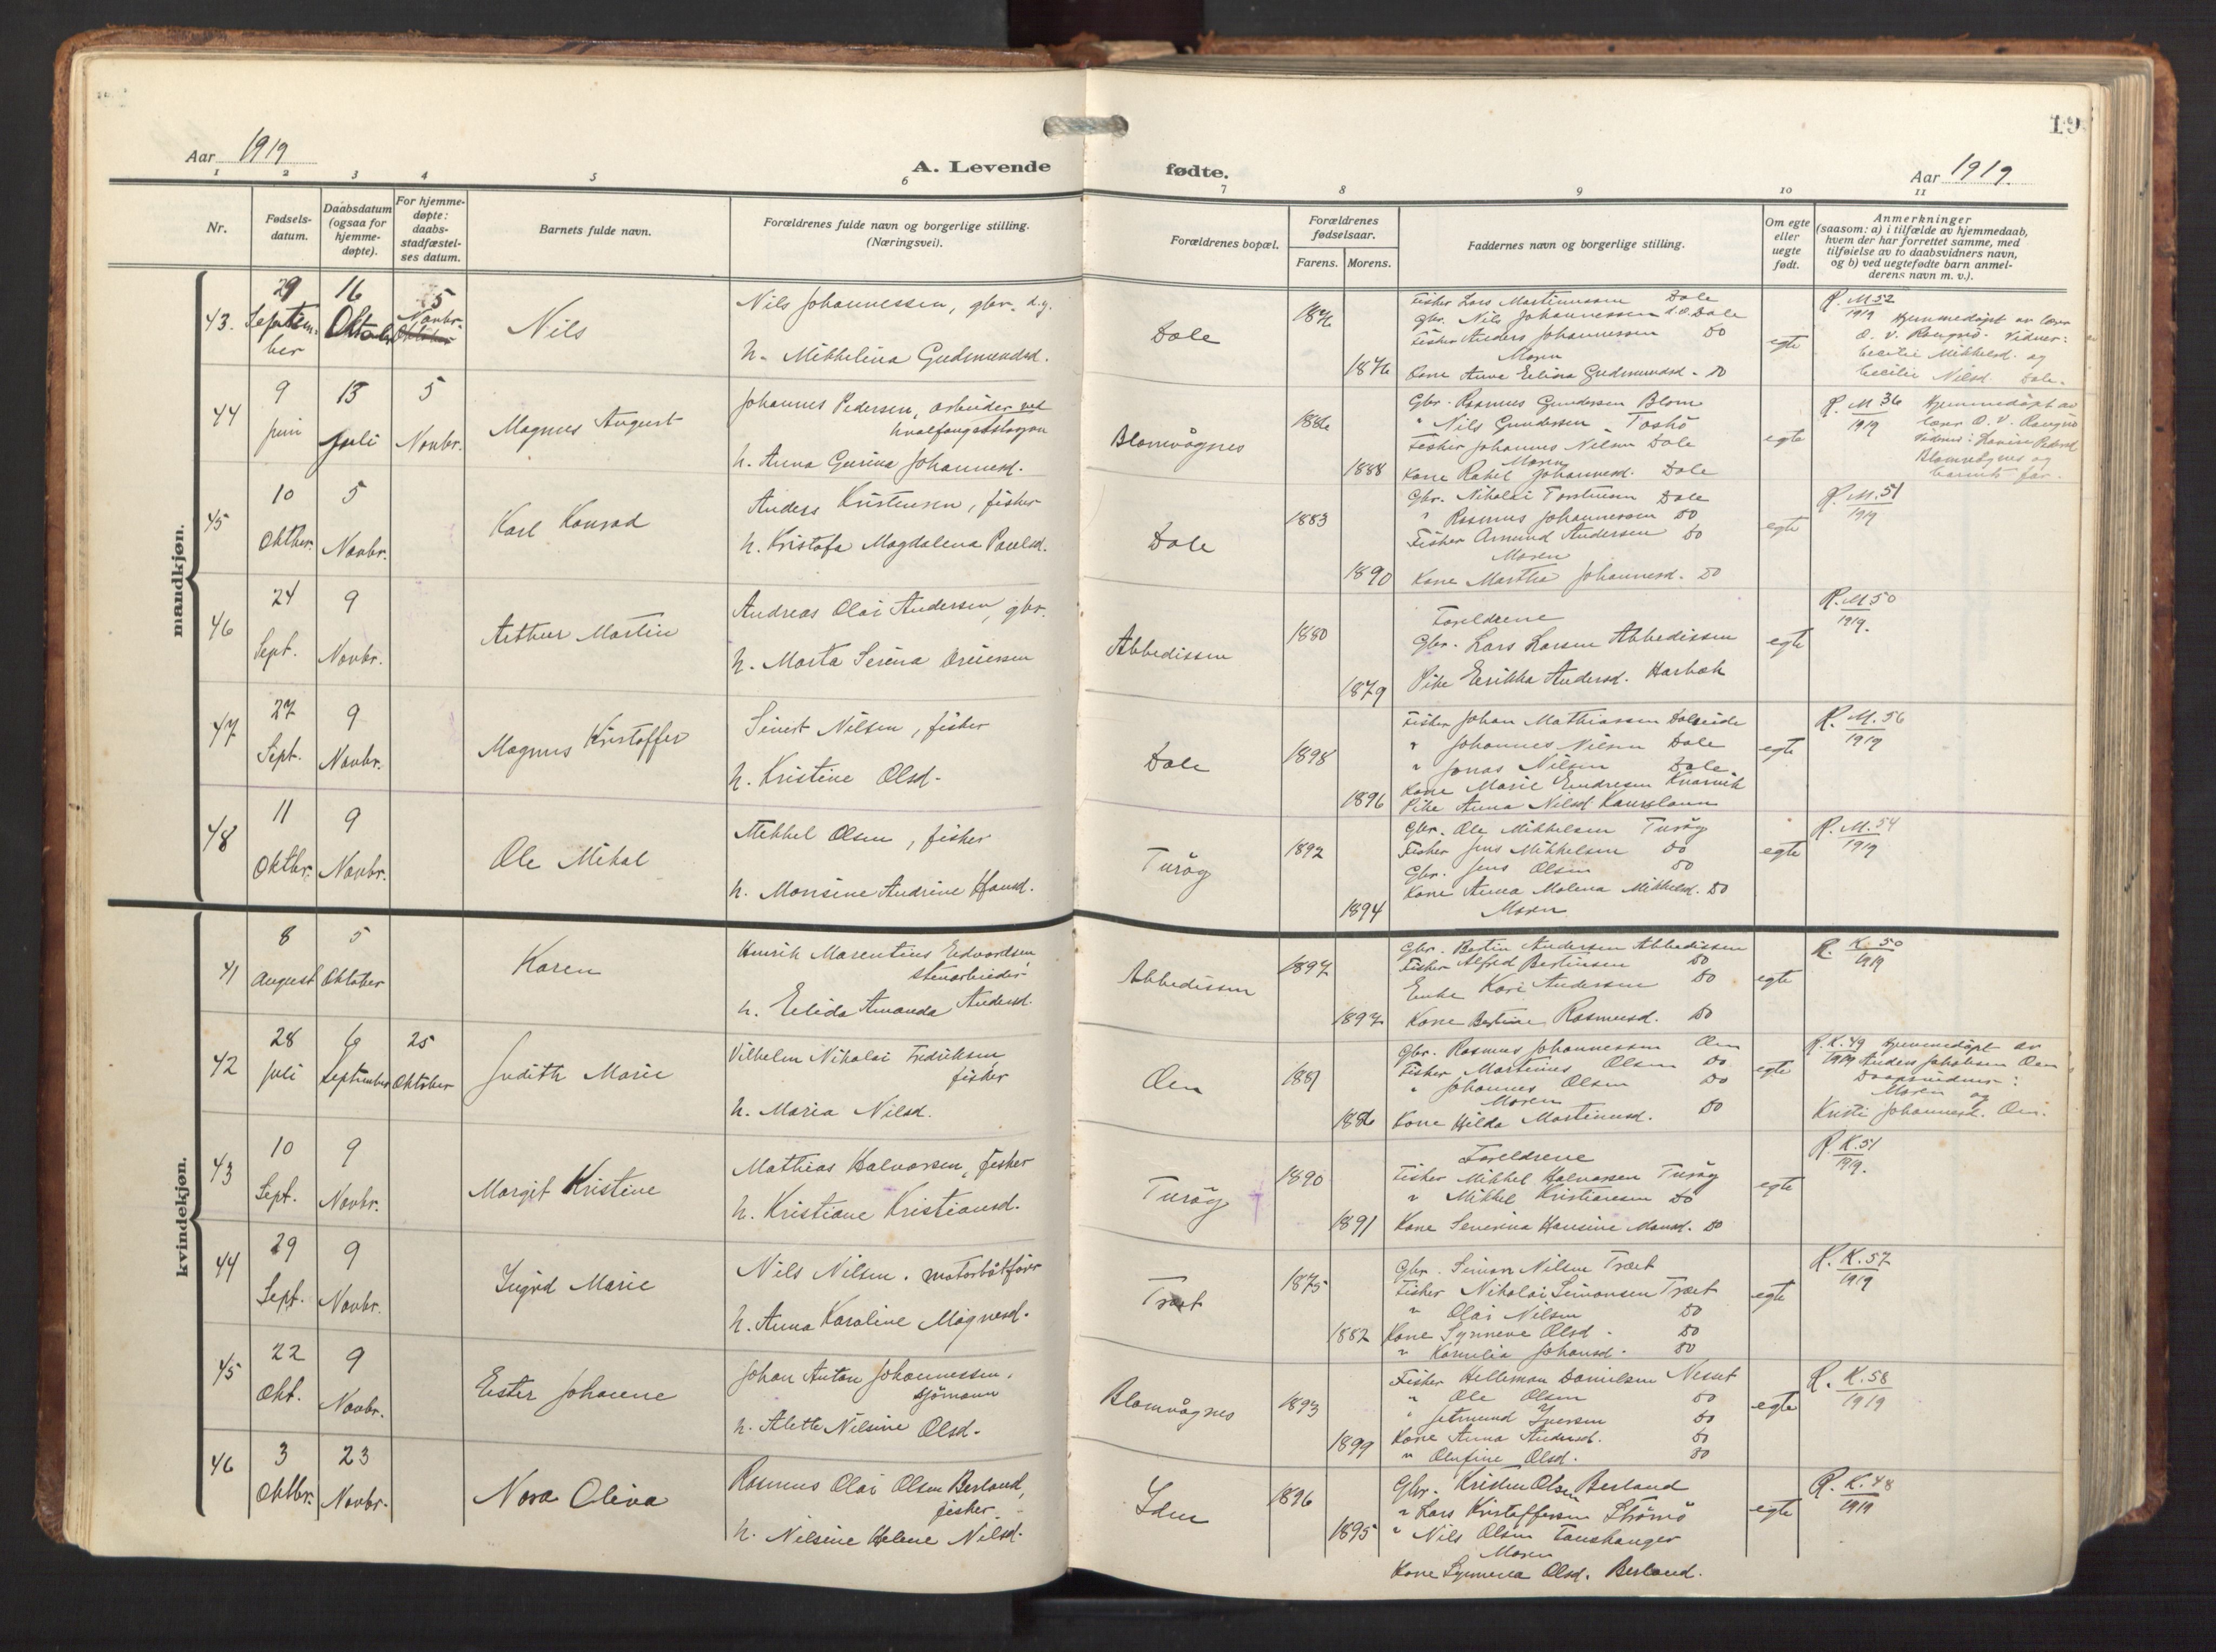 19
Aar 1919
A. Levende
fødte.
Aar 1919.
1 2 3 4 5 6 7 8 9 10 11
Nr.
Fødsels-
datum.
Daabsdatum
(ogsaa for
hjemme-
døpte).
For hjemme-
døpte:
daabs-
stadfæstel-
ses datum.
Barnets fulde navn.
Forældrenes fulde navn og borgerlige stilling.
(Næringsvei).
Forældrenes bopæl.
Forældrenes
fødselsaar.
Farens. Morens.
Faddernes navn og borgerlige stilling.
Om egte
eller
uegte
født.
Anmerkninger
(saasom: a) i tilfælde av hjemmedaab,
hvem der har forrettet samme, med
tilføielse av to daabsvidners navn,
og b) ved uegtefødte barn anmel-
derens navn m. v.).
mandkjøn.
43. 29 Septem-
ber
16 Oktober
5 Novbr.
Oktober
Nils
Nils Johannessen, gbr. d.y.
h. Mikkelina Gudmundsd.
Dale
1876
1876
Fisker Lars Martinussen Dale
Gbr. Nils Johannessen d.e. Dale
Fisker Anders Johannessen Do
Moren
Kone Anna Elina Gudmundsd. Do
egte
R. M 52
1919 Hjemmedøpt av lærer
O. V. Rongnø. Vidner:
Cecilie Mikkelsd. og
Cecilie Nilsd. Dale.
44
9 juni
13 juli
5 Novbr.
Magnus August
Johannes Pedersen, arbeider ved
hvalfangststasjon
h. Anna Gurina Johannesd.
Blomvågnes
1886
1888
Gbr. Rasmus Gundersen Blom
" Nils Gundersen Toskø
Fisker Johannes Nilsen Dale
Moren
Kone Rakel Johannesd. Dale
egte
R. M 36 Hjemmedøpt av
1919 lærer O. V. Rongnø
Vidner: Lovise Pedersd
Blomvågnes og
barnets far.
45
10 Oktbr.
5 Novbr.
Karl Konrad
Anders Kristensen, fisker
h. Kristofa Magdalena Paulsd.
Dale
1883
1890
Gbr. Nikolai Torstensen Dale
" Rasmus Johannessen Do
Fisker Amund Andersen Do
Moren
Kone Martha Johannesd. Do
egte
R. M. 51
1919
46
24 Sept.
9 Novbr.
Arthur Martin
Andreas Olai Andersen, gbr.
h. Marta Serina Sviersen
Abbedissen
1880
1879
Foreldrene
Gbr. Lars Larsen Abbedissen
Pike Erikka Andersd. Harbak
egte
R. M 50
1919.
47
27 Sept.
9 Novbr.
Magnus Kristoffer
Sivert Nilsen, fisker
h. Kristine Olsd.
Dale
1898
1896
Fisker Johan Mathiassen Daleide
" Johannes Nilsen Dale
" Jonas Nilsen Dale
Kone Marie Endresen Knarvik
Pike Anna Nilsd.
egte
R. M. 56
1919
48
11 Oktbr.
9 Novbr.
Ole Mikal
Mikkel Olsen, fisker
h. Monsine Andrine Hansd.
Turøy
1892
1894
Gbr. Ole Mikkelsen Turøy
Fisker Jens Mikkelsen Do
Gbr. Jens Olsen Do
Kone Anna Malena Mikkelsd. Do
Moren
egte
R. M. 54
1919
kvindekjøn.
41
8 August
5 Oktober
Karen
Henrik Marentius Edvardsen
stenarbeider
h. Elida Amanda Andersd.
Abbedissen
1897
1897
Gbr. Bertin Andersen Abbedissen
Fisker Alfred Bertinsen Do
Enke Kari Andersen Do
Kone Bertine Rasmusd. Do
egte
R. K. 50
1919
42
28 juli
6 September
25 Oktober
Judith Marie
Vilhelm Nikolai Fredriksen
fisker
h. Maria Nilsd.
Oen
1881
1886
Gbr. Rasmus Johannessen Oen
Fisker Martinus Olsen Do
" Johannes Olsen Do
Moren
Kone Hilda Martinusd. Do
egte
R. K. 49 Hjemmedøpt av
1919 Anders Jakobsen Oen
Daapsvidner:
Moren og
Kristi Johannesd. Oen.
43
10 Sept.
9 Novbr.
Margit Kristine
Mathias Halvorsen, fisker
h. Kristiane Kristiansd.
Turøy
1890
1891
Foreldrene
Fisker Mikkel Halvorsen Turøy
" Mikkel Kristiansen Do
Kone Severina Hansine Monsd. Do
egte
R. K. 51
1919.
44
29 Sept.
9 Novbr.
Ingrid Marie
Nils Nilsen. motorbåtfører
h. Anna Karoline Magnesd.
Træt
1875
1882
Gbr. Simon Nilsen Træt
Fisker Nikolai Simonsen Træt
" Olai Nilsen Do
Kone Synneve Olsd. Do
" Kornelia Johansd. Do
egte
R. K. 57
1919
45
22 Okt.
9 Novbr.
Ester Johanne
Johan Anton Johannessen,
sjömann
h. Alette Nilsine Olsd.
Blomvågnes
1893
1899
Fisker Helleman Danielsen Nesset
" Ole Olsen Do
" Jetmund Iversen Do
Kone Anna Andersd. Do
" Olufine Olsd. Do
egte
R. K. 58
1919
46
3 Oktbr.
23 Novbr.
Nora Oliva
Rasmus Olai Olsen Berland,
fisker.
h. Nilsine Helene Nilsd.
Iden
1896
1895
Gbr. Kristen Olsen Berland
" Lars Kristoffersen Strømø
" Nils Olsen Fauskanger
Moren
Kone Synneva Olsd. Berland.
egte
R. K. 48
1919